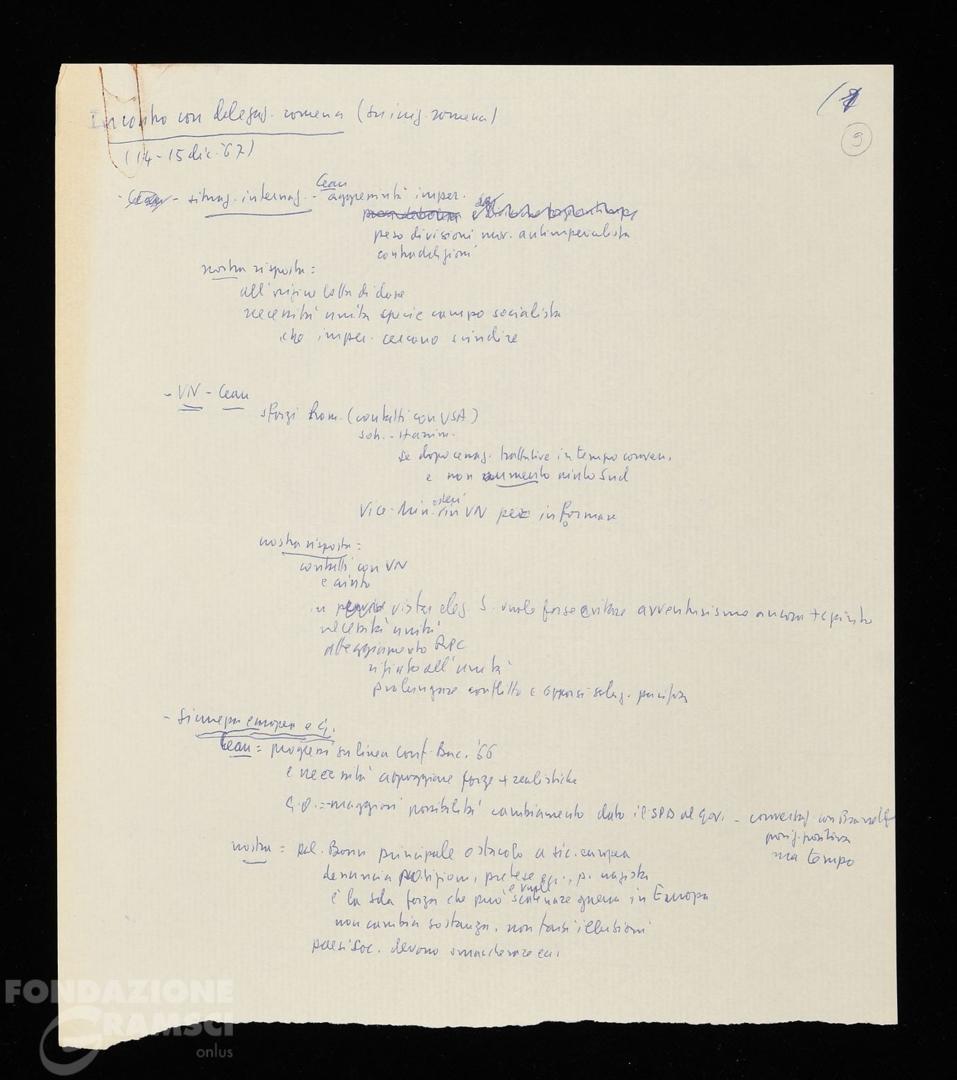 (1
9
Incontro con delegaz. romena (su iniz. romena)
(14-15 dic. '67)
- situaz. internaz. - Ceau aggressività imper.
peso divisioni mov. antimperialista
contraddizioni
nostra risposta:
all'origine lotta di classe
necessità unità specie campo socialista
che imper. cercano scindere
- VN - Ceau
sforzi Rom. (contatti con USA)
se dopo cessaz. trattative in tempo conven.
e non aumento aiuto Sud
Vice-Min. esteri in VN per informare
nostra risposta:
contatti con VN
e aiuto
in vista elez. avventurismo ancora + spinto
necessità unità
atteggiamento RPC
rifiuto all'unità
prolungare conflitto e opporsi soluz. pacifica
- Sicurezza europea e G.
Ceau = progressi su linea conf. Buc. '66
e necessità appoggiare forze + realistiche
G.O. = maggiori possibilità cambiamento dato il SPD al gov. - conversaz. con Brandt
posiz. positiva
ma tempo
nostra = pol. Bonn principale ostacolo a sic. europea
denuncia posizioni, pretese p. nazista
è la sola forza che può e vuole scatenare guerra in Europa
non cambia sostanza, non farsi illusioni
paesi soc. devono smascherare
FONDAZIONE
GRAMSCI
onlus